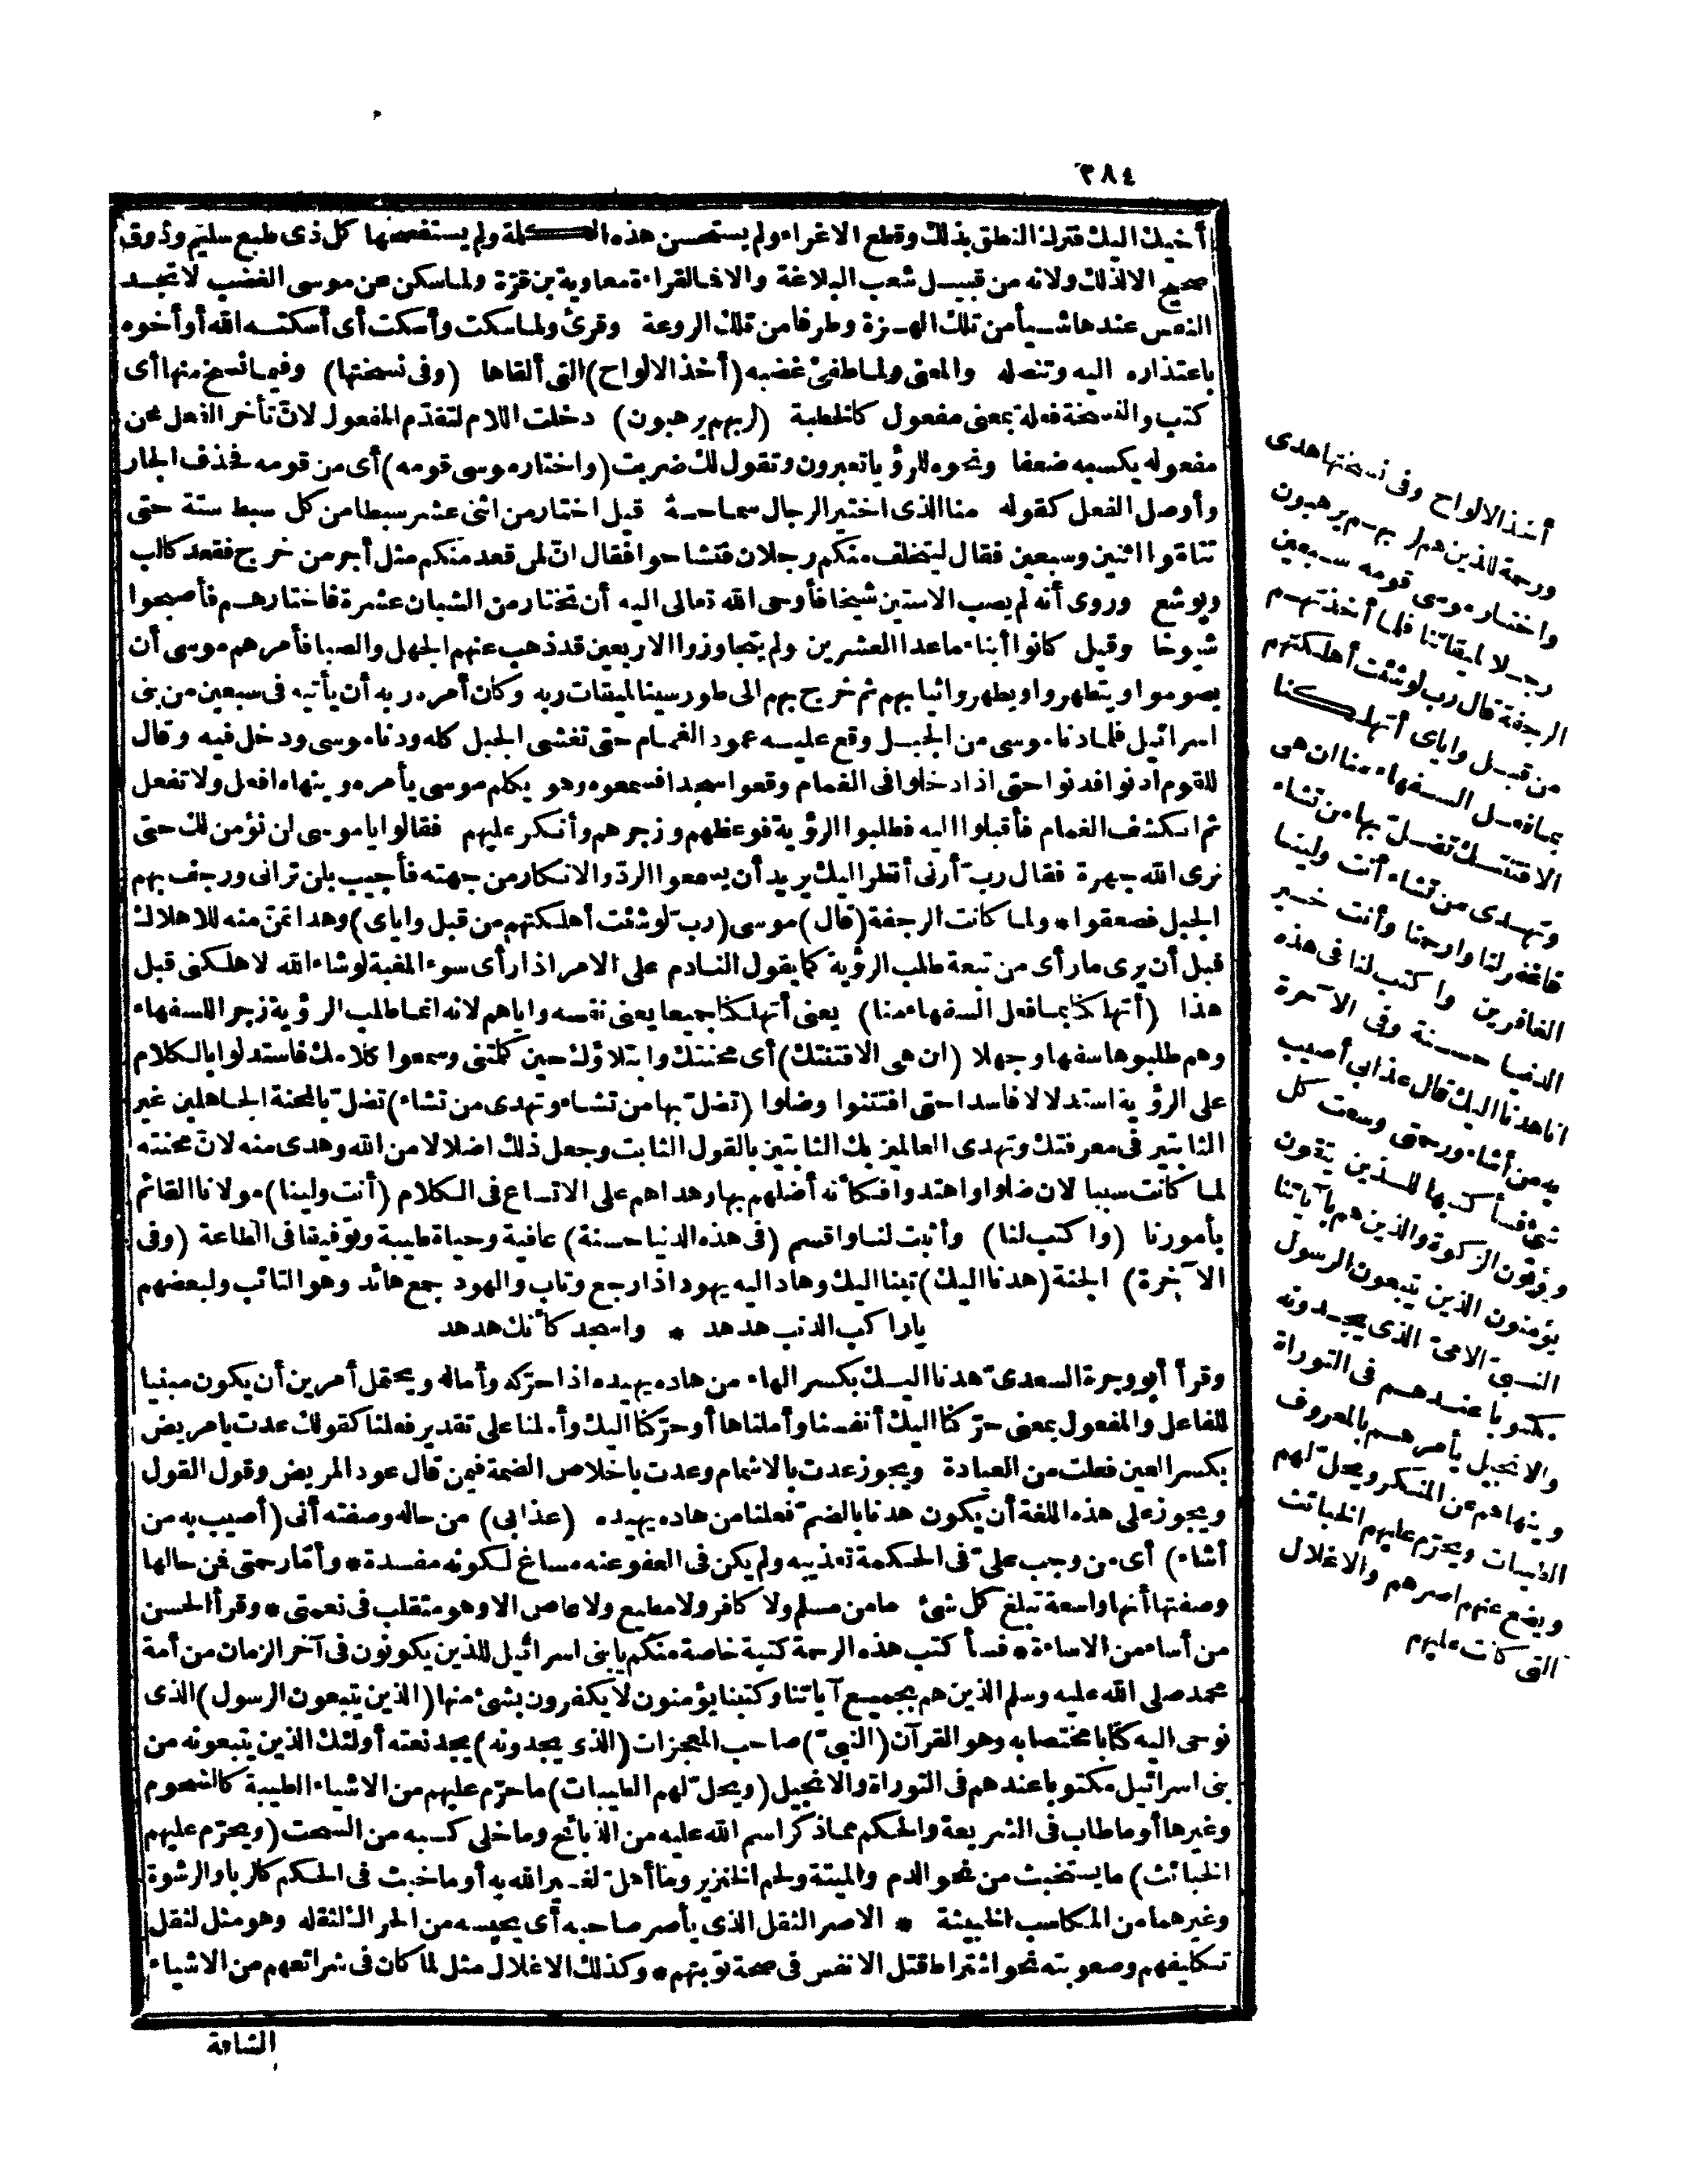 ٣٨٤
أخيك اليك فترك النطق بذلك وقطع الاغراء ولم يستحسن هذه الكلمة ولم يستفصحها كل ذى طبع سليم وذوق
صحيح الا لذلك ولانه من قبيل شعب البلاغة والا فما لقراءة معاوية بن قرّة ولما سكن عن موسى الغضب لا تجد
النفس عندها شيأ من تلك الهزة وطرفا من تلك الروعة وقرئ ولما سكت وأسكت أى أسكته الله أو أخوه
باعتذاره اليه وتنصله والمعنى ولما طفئ غضبه (أخذ الالواح) التى ألقاها (وفى نسختها) وفيما نسخ منها أى
كتب والنسخة فعلة بمعنى مفعول كالخطبة (لربهم يرهبون) دخلت اللام لتقدّم المفعول لانّ تأخر الفعل عن
مفعوله يكسبه ضعفا ونحوه للرؤيا تعبرون وتقول لك ضربت (واختار موسى قومه) أى من قومه فحذف الجار
وأوصل الفعل كقوله منا الذى اختير الرجال سماحة قيل اختار من اثنى عشر سبطا من كل سبط ستة حتى
تتاموا اثنين وسبعين فقال ليتخلف منكم رجلان فتشاحوا فقال انّ لمن قعد منكم مثل أجر من خرج فقعد كالب
ويوشع وروى أنه لم يصب الا ستين شيخا فأوحى الله تعالى اليه أن تختار من الشبان عشرة فاختارهم فأصبحوا
شيوخا وقيل كانوا أبناء ما عدا العشرين ولم يتجاوزوا الاربعين قد ذهب عنهم الجهل والصبا فأمرهم موسى أن
يصوموا ويتطهروا ويطهروا ثيابهم ثم خرج بهم الى طور سينا لميقات ربه وكان أمره ربه أن يأتيه فى سبعين من بنى
اسرائيل فلما دنا موسى من الجبل وقع عليه عمود الغمام حتى تغشى الجبل كله ودنا موسى ودخل فيه وقال
للقوم ادنوا فدنوا حتى اذا دخلوا فى الغمام وقعوا سجدا فسمعوه وهو يكلم موسى يأمره وينهاه افعل ولا تفعل
ثم انكشف الغمام فأقبلوا اليه فطلبوا الرؤية فوعظهم وزجرهم وأنكر عليهم فقالوا يا موسى لن نؤمن لك حتى
نرى الله جهرة فقال ربّ أرنى أنظر اليك يريد أن يسمعوا الردّ والانكار من جهته فأجيب بلن ترانى ورجف بهم
الجبل فصعقوا * ولما كانت الرجفة (قال) موسى (ربّ لو شئت أهلكتهم من قبل واياى) وهذا تمنّ منه للاهلاك
قبل أن يرى ما رأى من تبعة طلب الرؤية كما يقول النادم على الامر اذا رأى سوء المغبة لو شاء الله لاهلكنى قبل
هذا (أتهلكنا بما فعل السفهاء منا) يعنى أتهلكنا جميعا يعنى نفسه واياهم لانه انما طلب الرؤية زجرا للسفهاء
وهم طلبوها سفها وجهلا (ان هى الا فتنتك) أى محنتك وابتلاؤك حين كلمتنى وسمعوا كلامك فاستدلوا بالكلام
على الرؤية استدلالا فاسدا حتى افتتنوا وضلوا (تضلّ بها من تشاء وتهدى من تشاء) تضلّ بالمحنة الجاهلين غير
الثابتين فى معرفتك وتهدى العالمين بك الثابتين بالقول الثابت وجعل ذلك اضلالا من الله وهدى منه لانّ محنته
لما كانت سببا لان ضلوا واهتدوا فكأنه أضلهم بها وهداهم على الاتساع فى الكلام (أنت ولينا) مولانا القائم
بأمورنا (واكتب لنا) وأثبت لنا واقسم (فى هذه الدنيا حسنة) عافية وحياة طيبة وتوفيقا فى الطاعة (وفى
الآخرة) الجنة (هدنا اليك) تبنا اليك وهاد اليه يهود اذا رجع وتاب والهود جمع هائد وهو التائب ولبعضهم
يا راكب الذنب هدهد * واسجد كأنك هدهد
وقرأ أبو وجرة السعدىّ هدنا اليك بكسر الهاء من هاده يهيده اذا حرّكه وأماله ويحتمل أمرين أن يكون مبنيا
للفاعل والمفعول بمعنى حرّكنا اليك أنفسنا وأملناها أو حرّكنا اليك وأملنا على تقدير فعلنا كقولك عدت يا مريض
بكسر العين فعلت من العيادة ويجوز عدت بالاشمام وعدت باخلاص الضمة فيمن قال عود المريض وقول القول
ويجوز على هذه اللغة أن يكون هدنا بالضم فعلنا من هاده يهيده (عذابى) من حاله وصفته أنى (أصيب به من
أشاء) أى من وجب علىّ فى الحكمة تعذيبه ولم يكن فى العفو عنه مساغ لكونه مفسدة * وأمّا رحمتى فمن حالها
وصفتها أنها واسعة تبلغ كل شئ ما من مسلم ولا كافر ولا مطيع ولا عاص الا وهو متقلب فى نعمتى * وقرأ الحسن
من أساء من الاساءة * فسأكتب هذه الرحمة كتبة خاصة منكم يا بنى اسرائيل للذين يكونون فى آخر الزمان من أمة
محمد صلى الله عليه وسلم الذين هم بجميع آياتنا وكتبنا يؤمنون لا يكفرون بشئ منها (الذين يتبعون الرسول) الذى
نوحى اليه كتابا مختصا به وهو القرآن (النبىّ) صاحب المعجزات (الذى يجدونه) يجد نعته أولئك الذين يتبعونه من
بنى اسرائيل مكتوبا عندهم فى التوراة والانجيل (ويحلّ لهم الطيبات) ما حرّم عليهم من الاشياء الطيبة كالشحوم
وغيرها أو ما طاب فى الشريعة والحكم مما ذكر اسم الله عليه من الذبائح وما خلى كسبه من السحت (ويحرّم عليهم
الخبائث) ما يستخبث من نحو الدم والميتة ولحم الخنزير وما أهلّ لغير الله به أو ما خبث فى الحكم كالربا والرشوة
وغيرهما من المكاسب الخبيثة * الاصر الثقل الذى يأصر صاحبه أى يحبسه من الحراك لثقله وهو مثل لثقل
تكليفهم وصعوبته نحو اشتراط قتل الانفس فى صحة توبتهم * وكذلك الاغلال مثل لما كان فى شرائعهم من الاشياء
الشاقة
أخذ الالواح وفى نسختها هدى
ورحمة للذين هم لربهم يرهبون
واختار موسى قومه سبعين
رجلا لميقاتنا فلما أخذتهم
الرجفة قال رب لو شئت أهلكتهم
من قبل واياى أتهلكنا
بما فعل السفهاء منا ان هى
الا فتنتك تضلّ بها من تشاء
وتهدى من تشاء أنت ولينا
فاغفر لنا وارحمنا وأنت خير
الغافرين واكتب لنا فى هذه
الدنيا حسنة وفى الآخرة
انا هدنا اليك قال عذابى أصيب
به من أشاء ورحمتى وسعت كل
شئ فسأكتبها للذين يتقون
ويؤتون الزكوة والذين هم بآياتنا
يؤمنون الذين يتبعون الرسول
النبىّ الامىّ الذى يجدونه
مكتوبا عندهم فى التوراة
والانجيل يأمرهم بالمعروف
وينهاهم عن المنكر ويحلّ لهم
الطيبات ويحرّم عليهم الخبائث
ويضع عنهم اصرهم والاغلال
التى كانت عليهم